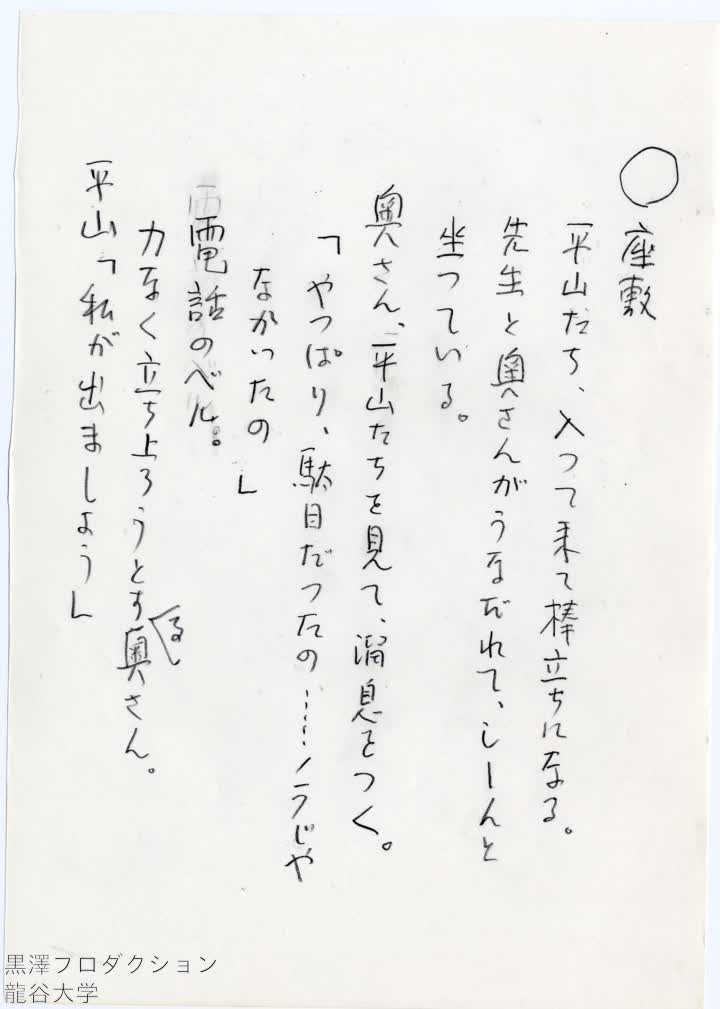 ○ 座敷
平山たち、入って来て棒立ちになる。
先生と奥さんがうなだれて、しーんと
坐っている。
奥さん、平山たちを見て、溜息をつく。
「やっぱり、駄目だったの……ノラじゃ
なかったの」
電話のベル。
力なく立ち上ろうとする奥さん。
平山「私が出ましよう」
黒澤プロダクション
龍谷大学